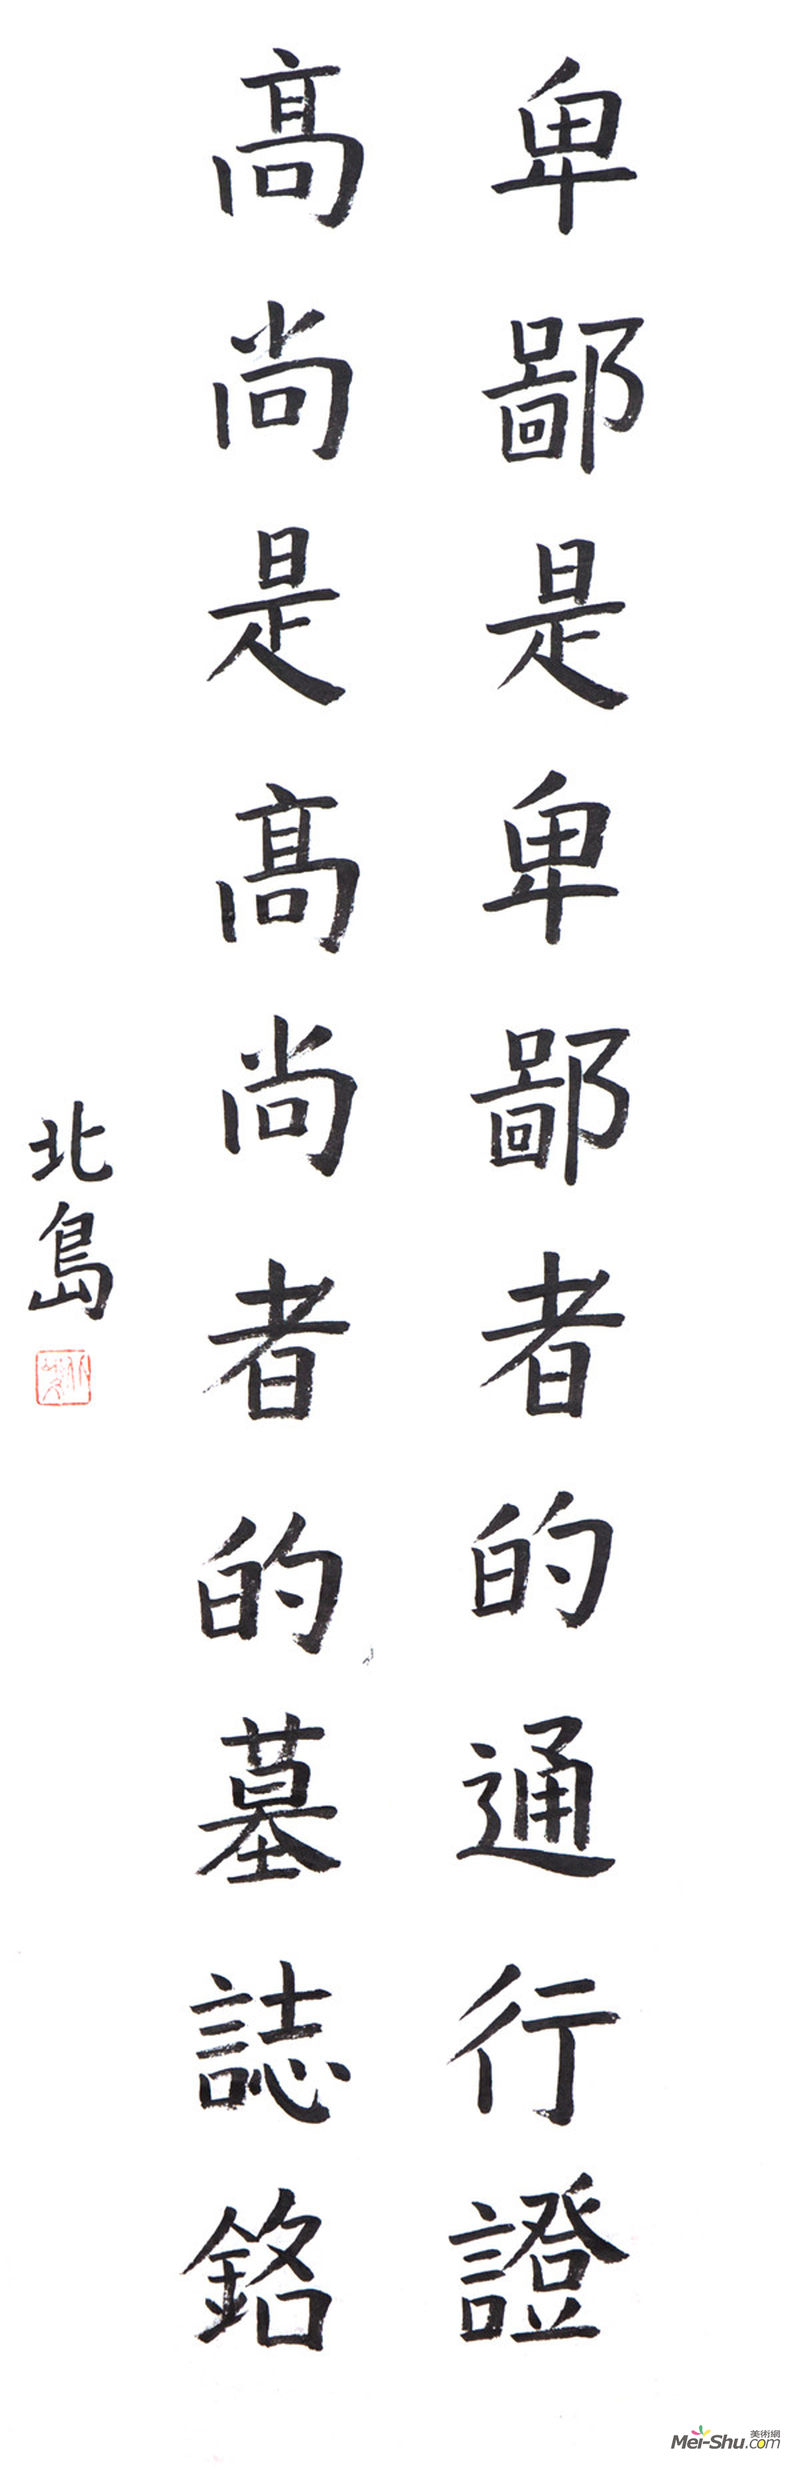 卑鄙是卑鄙者的通行證
高尚是高尚者的墓誌銘
北島
美術網
Mei-Shu.com